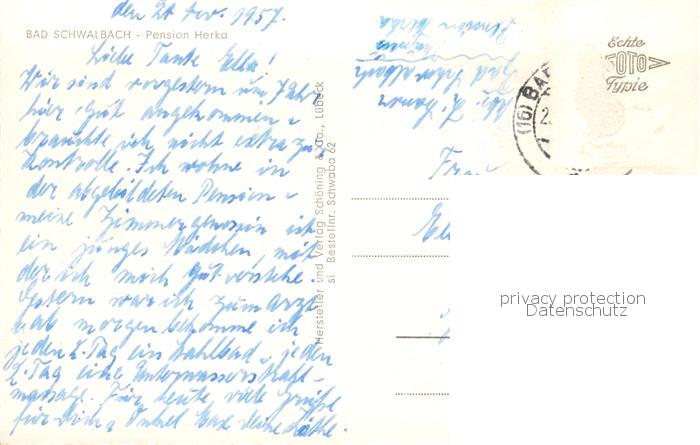 den 21. Nov. 1957.
BAD SCHWALBACH - Pension Herka
Liebe Tante Ella!
Wir sind vorgestern um 7 Uhr
hier gut angekommen.
brauchte ich nicht extra zur
Kontrolle. Ich wohne in
der abgebildeten Pension.
meine Zimmergenossin ist
ein junges Mädchen, mit
der ich mich gut verstehe.
Gestern war ich zum Arzt
ab morgen bekomme ich
jeden 2. Tag ein Stahlbad u. jeden
2. Tag eine Unterwasserstrahl-
massage. Für heute viele Grüße
für Dich u. Onkel Deine Käthe.
Hersteller und Verlag Schöning & Co., Lübeck
si Bestellnr. Schwaba 62
Pension Herka
Bad Schwalbach
Echte
FOTO
Typie
(16) BAD
Frau
privacy protection
Datenschutz